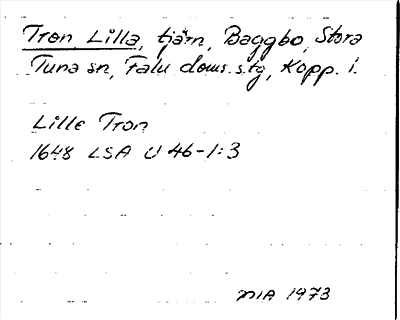 Tron Lilla, tjärn, Baggbo, Stora
Tuna sn, Falu doms. s. tg, Kopp. l.
Lille Tron
1648 LSA U 46-1:3
NIA 1973